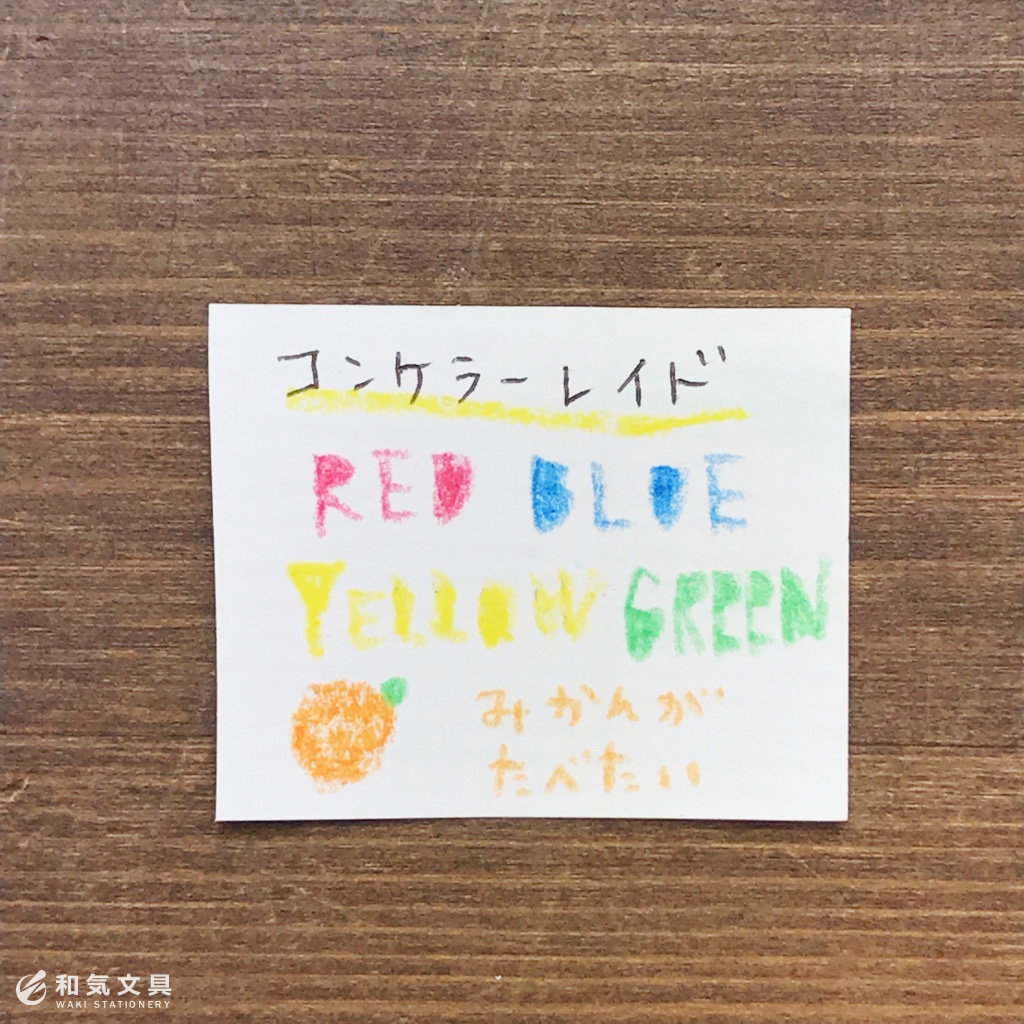 コンケラーレイド
RED BLUE
YELLOW GREEN
みかんが
たべたい
和気文具
WAKI STATIONERY